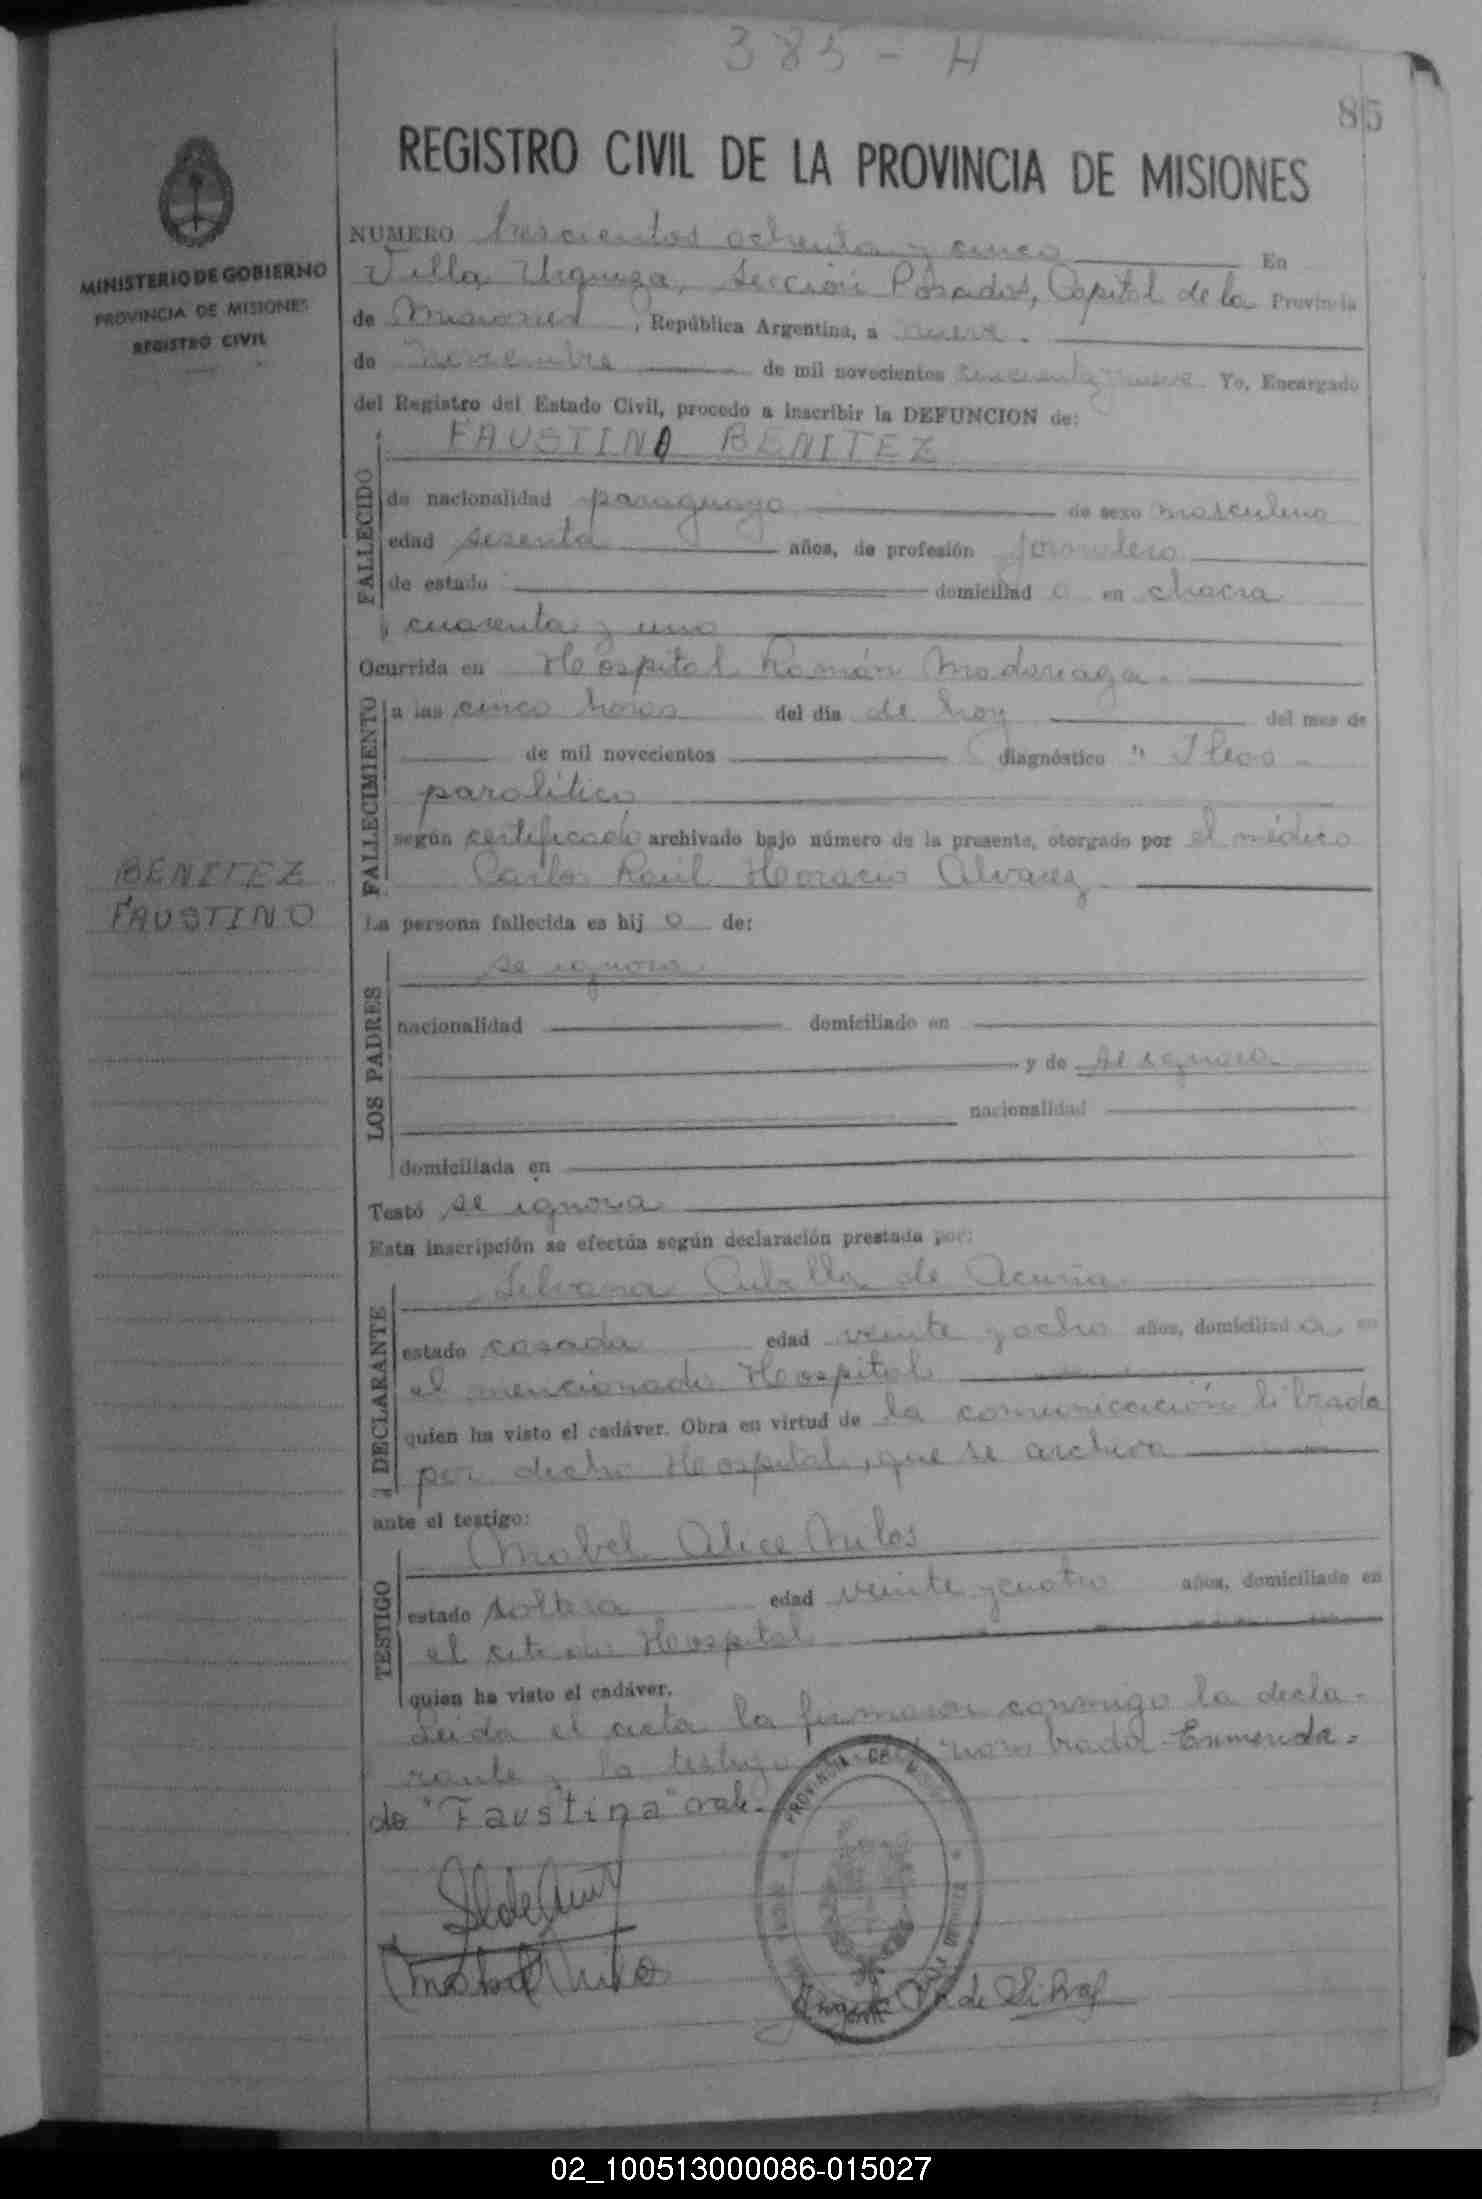 385 - H
85
REGISTRO CIVIL DE LA PROVINCIA DE MISIONES
MINISTERIO DE GOBIERNO
PROVINCIA DE MISIONES
REGISTRO CIVIL
NUMERO trescientos ochenta y cinco En
Villa Urquiza, Sección Posadas, Capital de la Provincia
de Misiones, República Argentina, a nueve.
de noviembre de mil novecientos cincuenta y nueve Yo, Encargado
del Registro del Estado Civil, procedo a inscribir la DEFUNCION de:
FAUSTINO BENITEZ
FALLECIDO
de nacionalidad paraguayo de sexo masculino
edad sesenta años, de profesión jornalero
de estado domiciliad o en chacra
cuarenta y uno
Ocurrida en Hospital Ramón Madariaga.
FALLECIMIENTO
a las cinco horas del día de hoy del mes de
de mil novecientos diagnóstico " Ileos
paralítico
según certificado archivado bajo número de la presente, otorgado por el médico
Carlos Raúl Horacio Alvarez
BENITEZ
FAUSTINO
La persona fallecida es hij o de:
LOS PADRES
se ignora
nacionalidad domiciliado en
y de se ignora
nacionalidad
domiciliada en
Testó se ignora
Esta inscripción se efectúa según declaración prestada por:
DECLARANTE
Silvana de Acuña
estado casada edad veinte y ocho años, domiciliad a en
el mencionado Hospital
quien ha visto el cadáver. Obra en virtud de la comunicación librada
por dicho Hospital, que se archiva
ante el testigo:
TESTIGO
Mabel Alice
estado soltera edad veinte y cuatro años, domiciliado en
el citado Hospital
quien ha visto el cadáver.
Leida el acta la firmaron conmigo la decla-
rante y la testigo nombrada - Enmenda-
do "Faustina" vale.
PROVINCIA DE
de Silva
02_100513000086-015027